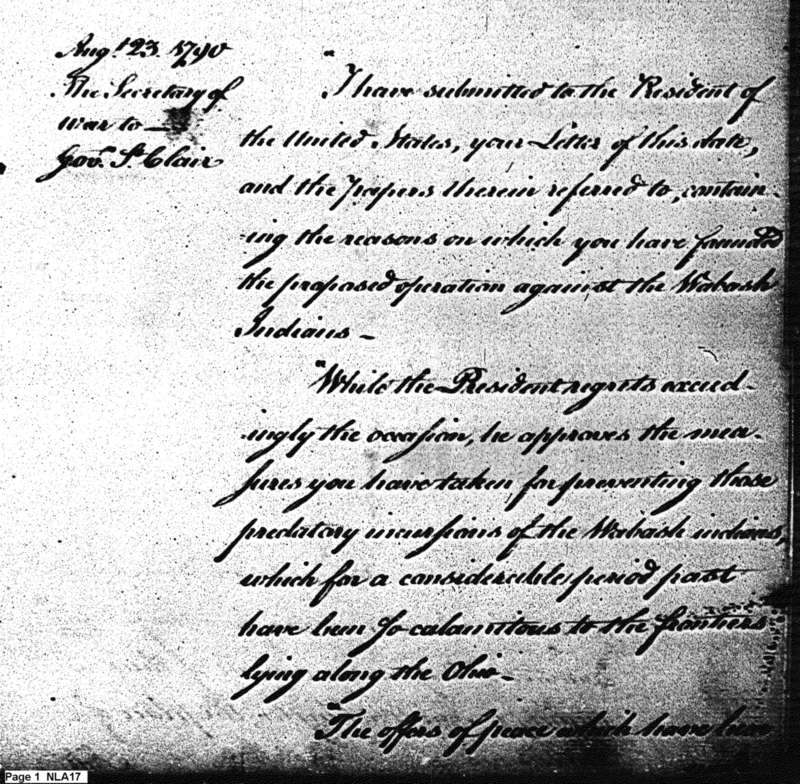 Augt. 23. 1790
The Secretary of
War to —
Gov. St. Clair
"I have submitted to the President of
the United States, your Letter of this date,
and the Papers therein referred to, contain-
-ing the reasons on which you have founded
the proposed operation against the Wabash
Indians —
"While the President regrets exceed-
-ingly the occasion, he approves the mea-
sures you have taken for preventing those
predatory incursions of the Wabash indians,
which for a considerable period past
have been so calamitous to the frontiers
lying along the Ohio —
"The offers of peace which have been
Page 1 NLA17